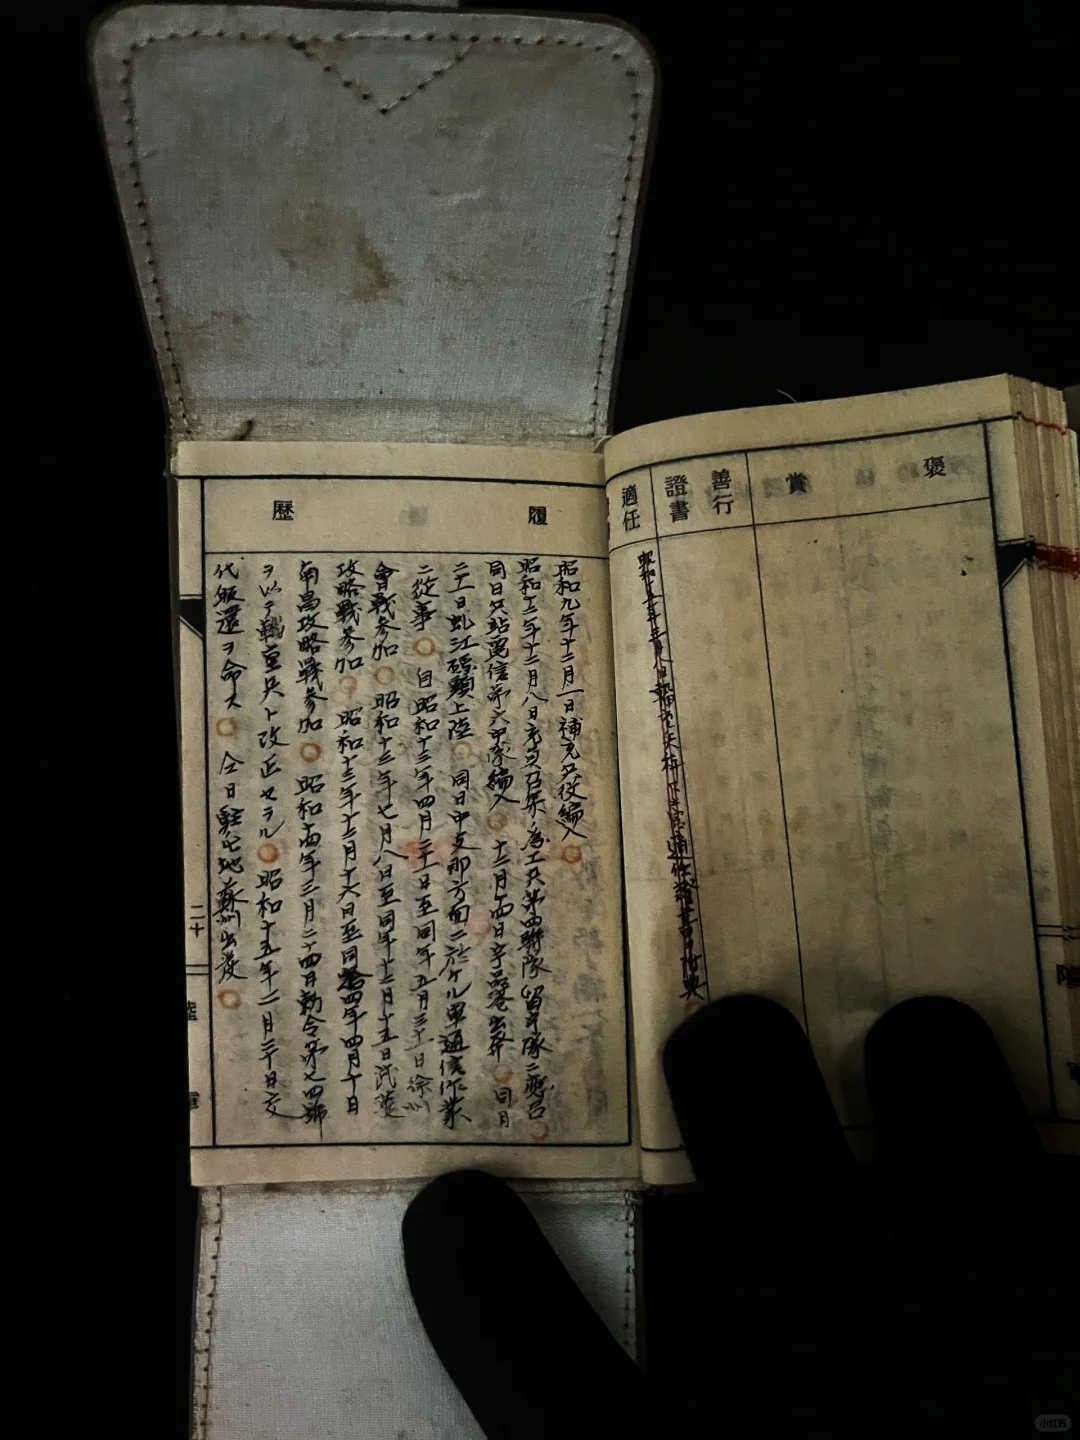 褒 賞
善行
證書
適任
履 歷
昭和九年十二月一日補充兵役編入
昭和十二年十二月八日充員召集ノ為工兵第四聯隊留守隊ニ應召
同日兵站電信第六中隊編入 十二月十四日宇品港出發 同月
二十一日虬江碼頭上陸 同日中支那方面ニ於ケル軍通信作業
ニ從事 自昭和十三年四月二十一日至同年五月三十一日徐州
會戰參加 昭和十三年七月八日至同年十二月十五日武漢
攻略戰參加 昭和十三年十二月十六日至同拾四年四月十日
南昌攻略戰參加 昭和十四年三月二十四日勅令第七四號
ヲ以テ輜重兵ト改正セラル 昭和十五年二月二十日交
代歸還ヲ命ス 仝日駐屯地蘇州出發
二十
陸
軍
小红书